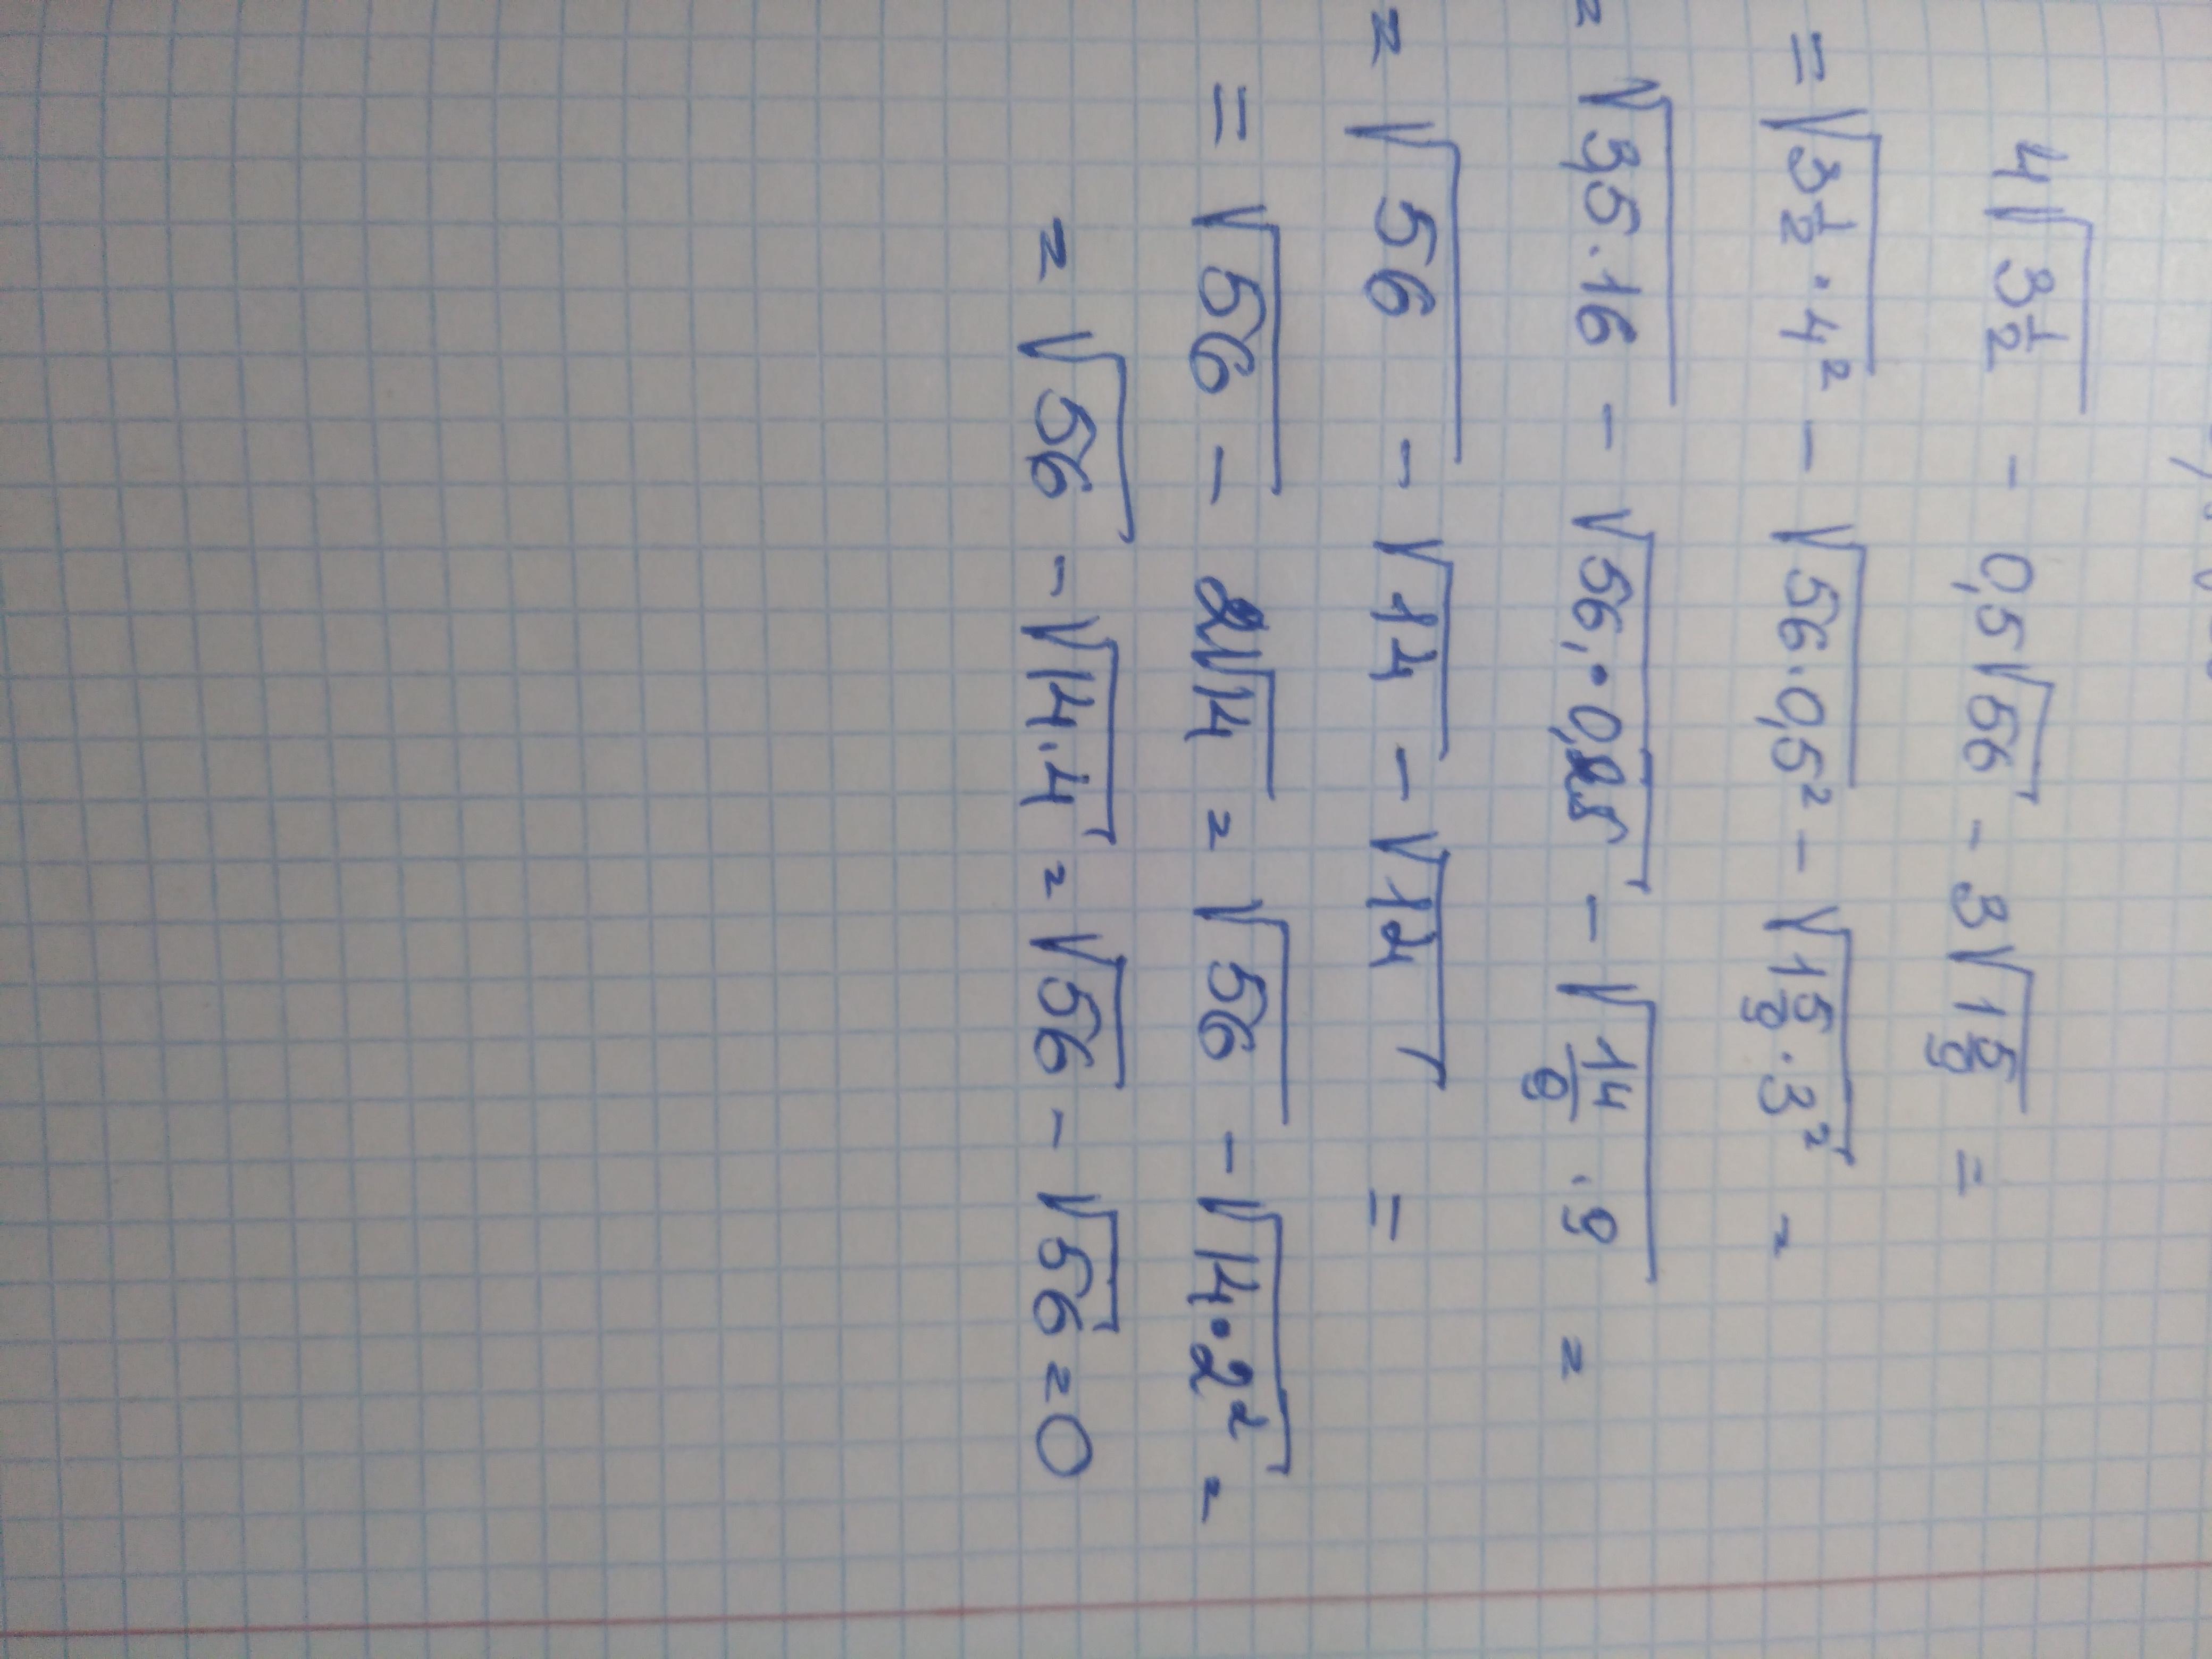 4√3 1/2 - 0,5√56 - 3√1 5/9 =
= √3 1/2 · 4² - √56 · 0,5² - √1 5/9 · 3² =
= √3,5 · 16 - √56 · 0,25 - √14/9 · 9 =
= √56 - √14 - √14 =
= √56 - 2√14 = √56 - √14 · 2² =
= √56 - √14 · 4 = √56 - √56 = 0